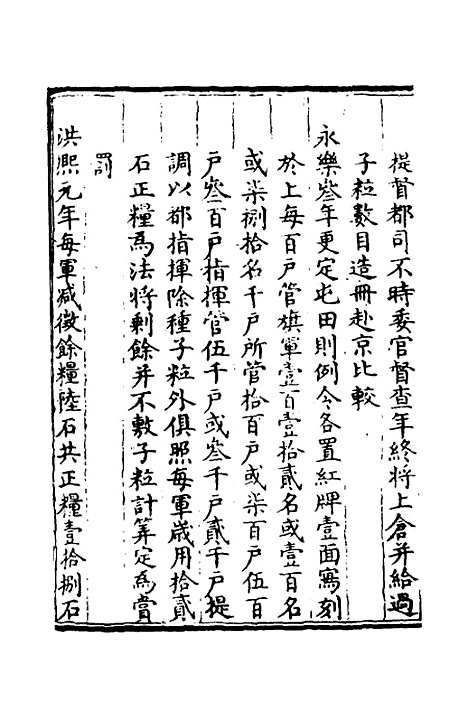 提督都司不時委官督查年終將上倉并給過
子粒數目造冊赴京比較
永樂叁年更定屯田則例令各置紅牌壹面寫刻
於上每百戶管旗軍壹百壹拾貳名或壹百名
或柒捌拾名千戶所管拾百戶或柒百戶伍百
戶叁百戶指揮管伍千戶或叁千戶貳千戶提
調以都指揮除種子粒外俱照每軍歲用拾貳
石正糧為法將剩餘并不敷子粒計筭定為賞
罰
洪熙元年每軍减徵餘糧陸石共正糧壹拾捌石